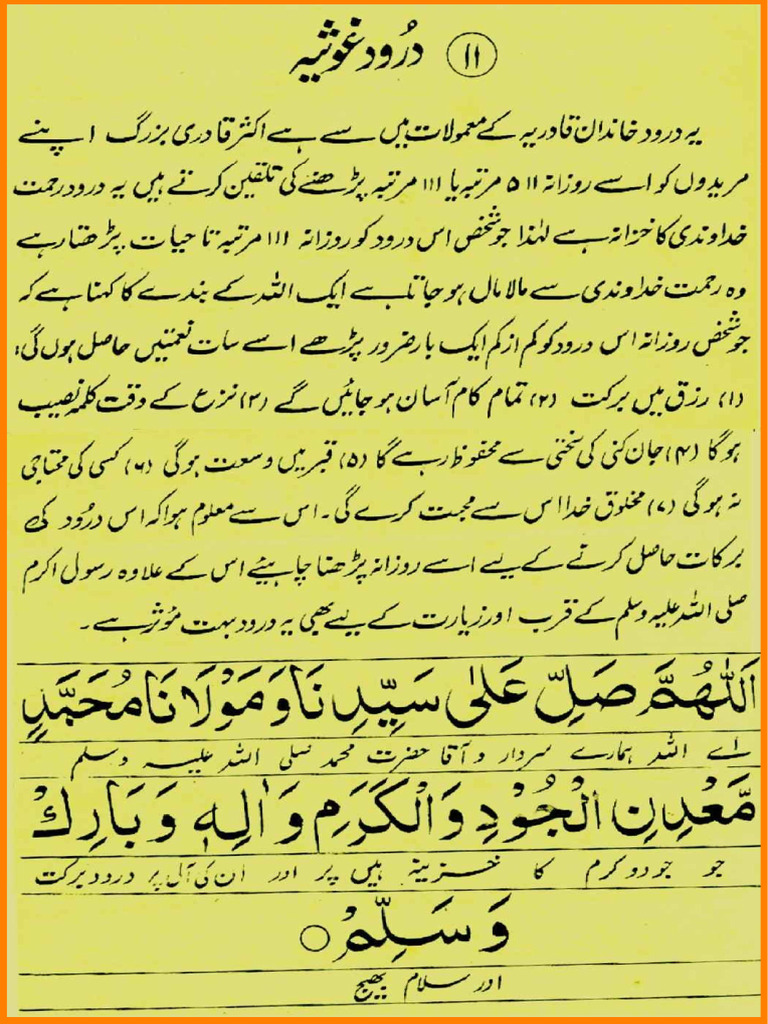 ۱۱ درُود غوثیہ
یہ درود خاندان قادریہ کے معمولات میں سے ہے اکثر قادری بزرگ اپنے
مریدوں کو اسے روزانہ ۵۱۱ مرتبہ یا ۱۱۱ مرتبہ پڑھنے کی تلقین کرتے ہیں یہ درود رحمت
خداوندی کا خزانہ ہے لہٰذا جو شخص اس درود کو روزانہ ۱۱۱ مرتبہ تا حیات پڑھتا رہے
وہ رحمت خداوندی سے مالا مال ہو جاتا ہے ایک اللہ کے بندے کا کہنا ہے کہ
جو شخص روزانہ اس درود کو کم از کم ایک بار ضرور پڑھے اسے سات نعمتیں حاصل ہوں گی:
(۱) رزق میں برکت (۲) تمام کام آسان ہو جائیں گے (۳) نزع کے وقت کلمہ نصیب
ہوگا (۴) جان کنی کی سختی سے محفوظ رہے گا (۵) قبر میں وسعت ہوگی (۶) کسی کی محتاجی
نہ ہوگی (۷) مخلوق خدا اس سے محبت کرے گی۔ اس سے معلوم ہوا کہ اس درُود کی
برکات حاصل کرنے کے لیے اسے روزانہ پڑھنا چاہیئے اس کے علاوہ رسول اکرم
صلی اللہ علیہ وسلم کے قرب اور زیارت کے لیے بھی یہ درود بہت مؤثر ہے۔
اَللّٰهُمَّ صَلِّ عَلٰى سَيِّدِنَا وَمَوْلَانَا مُحَمَّدٍ
اے اللہ ہمارے سردار و آقا حضرت محمد صلی اللہ علیہ وسلم
مَّعْدِنِ الْجُوْدِ وَالْكَرَمِ وَاٰلِهٖ وَبَارِكْ
جو جود و کرم کا خزینہ ہیں پر اور ان کی آل پر درود برکت
وَسَلِّمْ ○
اور سلام بھیج